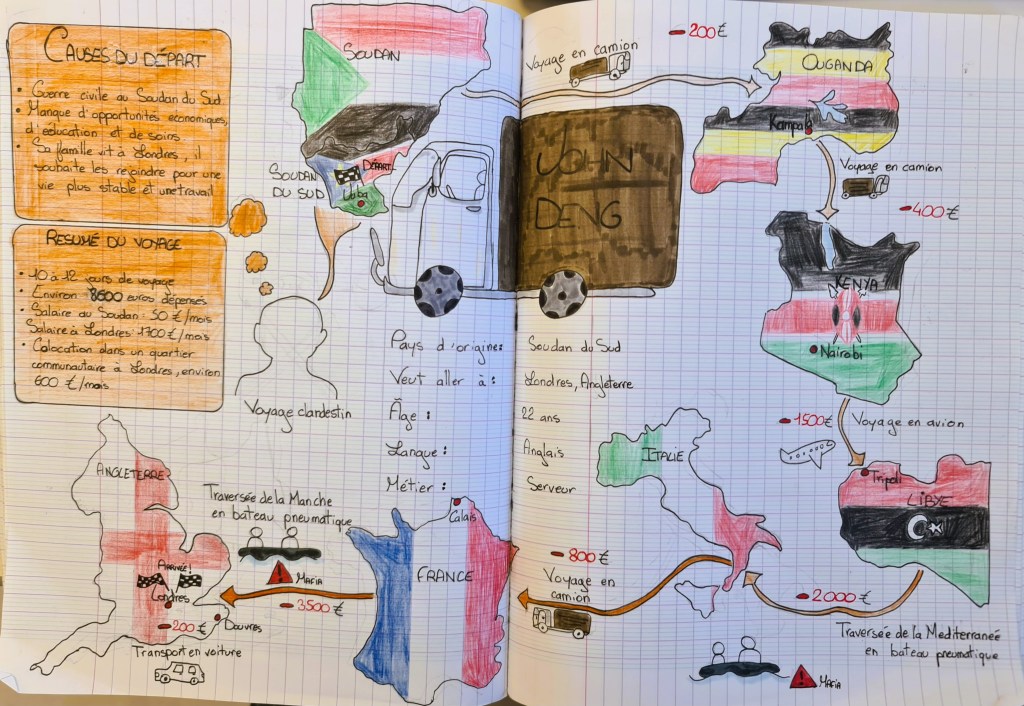 CAUSES DU DÉPART
• Guerre civile au Soudan du Sud.
• Manque d'opportunités économiques,
d'éducation et de soins
• Sa famille vit à Londres, il
souhaite les rejoindre pour une
vie plus stable et une travail
RESUMÉ DU VOYAGE
• 10 à 12 jours de voyage
• Environ 8600 euros dépensés
• Salaire au Soudan: 50 €/mois
Salaire à Londres: 1700 €/mois
• Colocation dans un quartier
communautaire à Londres, environ
600 €/mois
SOUDAN
SOUDAN
DU SUD
DÉPART
Juba
Voyage clandestin
JOHN
DENG
Pays d'origine: Soudan du Sud
Veut aller à: Londres, Angleterre
Âge: 22 ans
Langue: Anglais
Métier: Serveur
Voyage en camion
- 200 €
OUGANDA
Kampala
Voyage en camion
- 400 €
KENYA
Nairobi
- 1500 €
Voyage en avion
Tripoli
LIBYE
- 2000 €
Traversée de la Mediterraneé
en bateau pneumatique
MAFIA
ITALIE
- 800 €
Voyage en
camion
FRANCE
Calais
Traversée de la Manche
en bateau pneumatique
MAFIA
- 3500 €
ANGLETERRE
ARRIVÉE!
Londres
- 200 €
Douvres
Transport en voiture